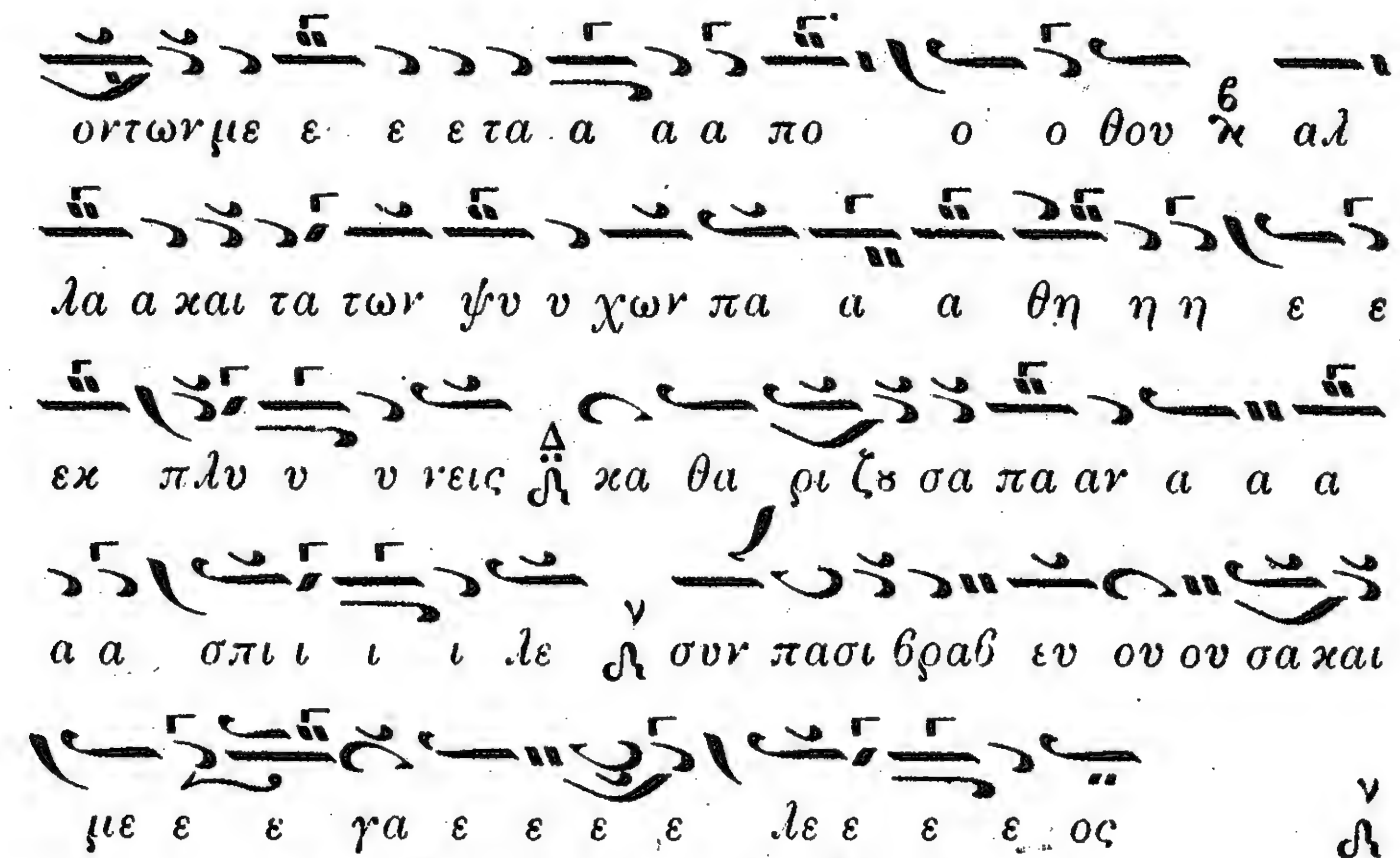 οντων με ε ε ε τα α α α πο ο ο θου β ϗ αλ
λα α και τα των ψυ υ χων πα α α θη η η ε ε
εκ πλυ υ υ νεις Δ κα θα ρι ζȣ σα πα αν α α α
α α σπι ι ι ι λε ν συν πασι βραβ ευ ου ου σα και
με ε ε γα ε ε ε ε λε ε ε ε ος ν